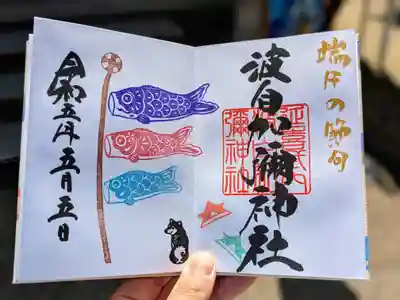 端午の節句
波自加彌神社
延喜式内
波自加
彌神社
令和五年五月五日